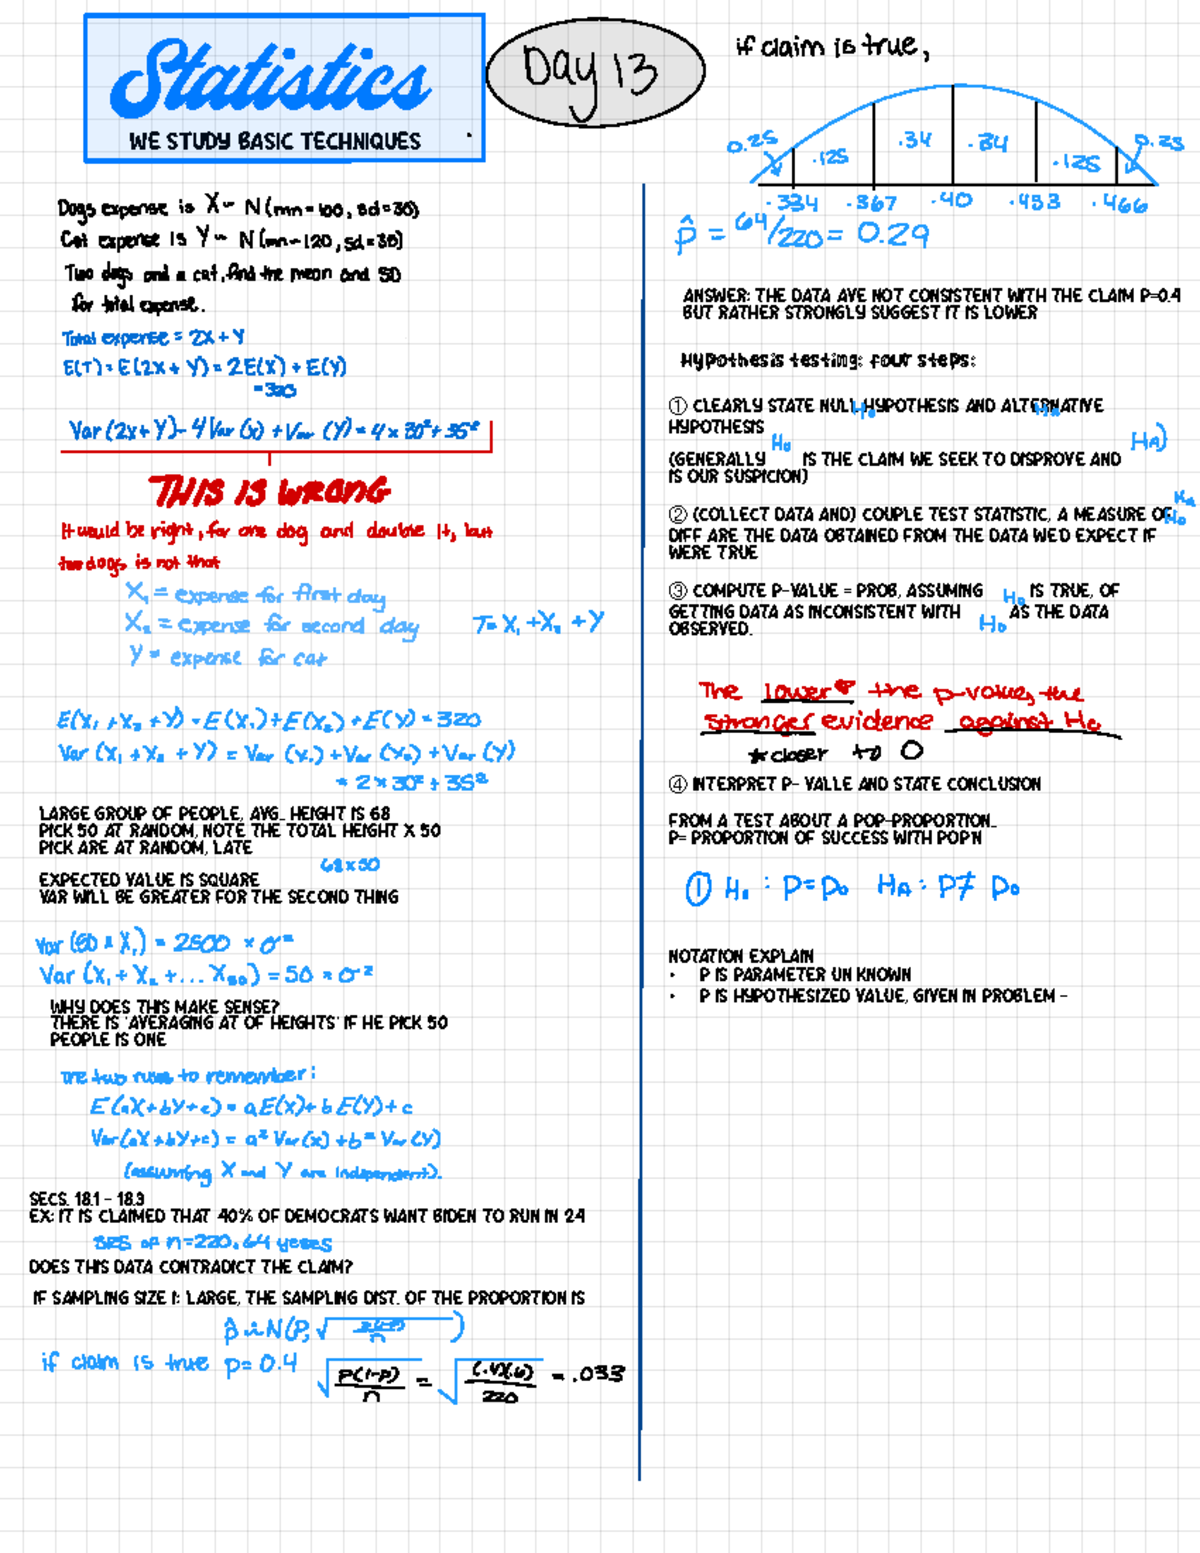 Statistics
WE STUDY BASIC TECHNIQUES
Day 13
Dogs expense is X ~ N(mn=100, sd=30)
Cat expense is Y ~ N(mn=120, sd=30)
Two dogs and a cat, find the mean and SD
for total expense.
Total expense = 2X + Y
E(T) = E(2X + Y) = 2E(X) + E(Y)
=320
Var (2x+Y) - 4 Var (x) + Var (Y) = 4 × 30² + 35²
THIS IS WRONG
It would be right, for one dog and double it, but
two dogs is not that
X₁ = expense for first day
X₂ = expense for second day T= X₁ +X₂ + Y
Y = expense for cat
E(X₁ + X₂ + Y) = E(X₁) + E(X₂) + E(Y) = 320
Var (X₁ + X₂ + Y) = Var (X₁) + Var (X₂) + Var (Y)
= 2 × 30² + 35²
LARGE GROUP OF PEOPLE, AVG. HEIGHT IS 68
PICK 50 AT RANDOM, NOTE THE TOTAL HEIGHT X 50
PICK ARE AT RANDOM, LATE
68×50
EXPECTED VALUE IS SQUARE
VAR WILL BE GREATER FOR THE SECOND THING
Var (50 × X₁) = 2500 × σ²
Var (X₁ + X₂ + ... X₅₀) = 50 × σ²
WHY DOES THIS MAKE SENSE?
THERE IS 'AVERAGING AT OF HEIGHTS' IF HE PICK 50
PEOPLE IS ONE
The two rules to remember:
E(aX+bY+c) = aE(X)+ bE(Y)+c
Var(aX+bY+c) = a² Var(x) + b² Var (Y)
(assuming X and Y are independent).
SECS. 18.1 - 18.3
EX: IT IS CLAIMED THAT 40% OF DEMOCRATS WANT BIDEN TO RUN IN 24
SRS of n=220, 64 yeses
DOES THIS DATA CONTRADICT THE CLAIM?
IF SAMPLING SIZE I: LARGE, THE SAMPLING DIST. OF THE PROPORTION IS
p̂ ~ N(P, √ n )
if claim is true p= 0.4 √ P(1-P)/n = √ (.4)(.6)/220 = .033
if claim is true,
0.25 .125 .34 .34 .125 0.25
.334 .367 .40 .433 .466
p̂ = 64/220 = 0.29
ANSWER: THE DATA AVE NOT CONSISTENT WITH THE CLAIM P=0.4
BUT RATHER STRONGLY SUGGEST IT IS LOWER
Hypothesis testing: four steps:
① CLEARLY STATE NULL HYPOTHESIS AND ALTERNATIVE
H₀ Hₐ
HYPOTHESIS
(GENERALLY H₀ IS THE CLAIM WE SEEK TO DISPROVE AND HA)
IS OUR SUSPICION)
② (COLLECT DATA AND) COUPLE TEST STATISTIC, A MEASURE OF
Hₐ
H₀
DIFF ARE THE DATA OBTAINED FROM THE DATA WE'D EXPECT IF
WERE TRUE
③ COMPUTE P-VALUE = PROB, ASSUMING H₀ IS TRUE, OF
GETTING DATA AS INCONSISTENT WITH H₀ AS THE DATA
OBSERVED.
The lower the p-value, the
stronger evidence against H₀
*closer to 0
④ INTERPRET P- VALLE AND STATE CONCLUSION
FROM A TEST ABOUT A POP-PROPORTION_
P= PROPORTION OF SUCCESS WITH POP'N
① H₀ : P=P₀ HA : P≠ P₀
NOTATION EXPLAIN
• P IS PARAMETER UN KNOWN
• P IS HYPOTHESIZED VALUE, GIVEN IN PROBLEM -